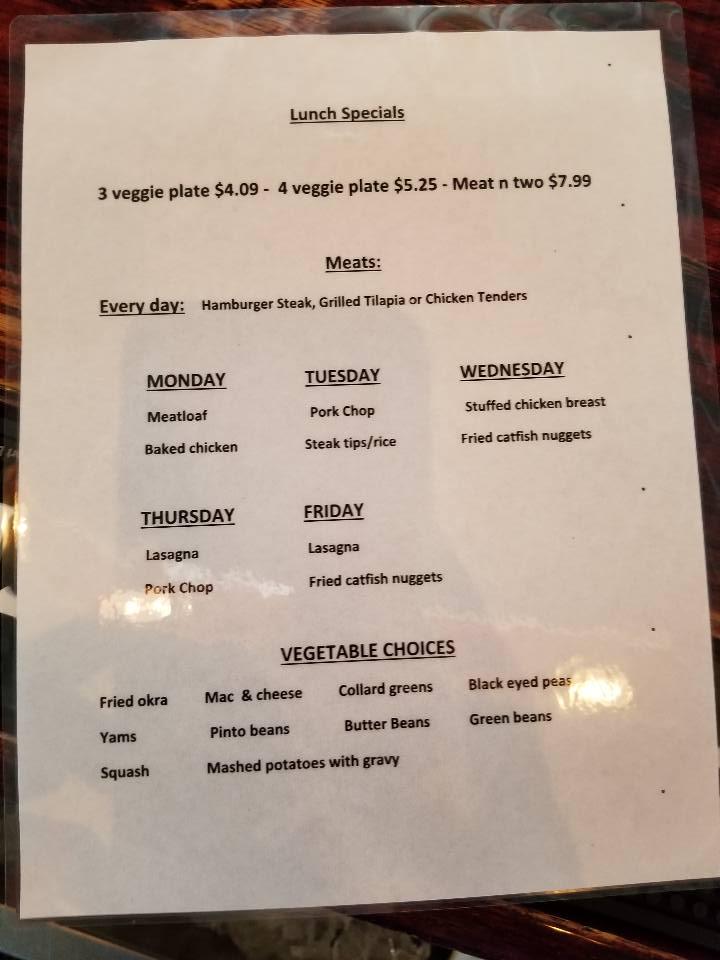 Lunch Specials
3 veggie plate $4.09 - 4 veggie plate $5.25 - Meat n two $7.99
Meats:
Every day: Hamburger Steak, Grilled Tilapia or Chicken Tenders
MONDAY TUESDAY WEDNESDAY
Meatloaf Pork Chop Stuffed chicken breast
Baked chicken Steak tips/rice Fried catfish nuggets
THURSDAY FRIDAY
Lasagna Lasagna
Pork Chop Fried catfish nuggets
VEGETABLE CHOICES
Fried okra Mac & cheese Collard greens Black eyed peas
Yams Pinto beans Butter Beans Green beans
Squash Mashed potatoes with gravy